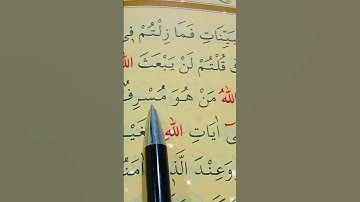 بَيِّنَاتِ فَمَا زِلْتُمْ فِي
قُلْتُمْ لَنْ يَبْعَثَ اللّٰ
اللّٰهُ مَنْ هُوَ مُسْرِفٌ
اٰيَاتِ اللّٰهِ بِغَيْ
وَعِنْدَ الَّذ۪ اٰمَنُ